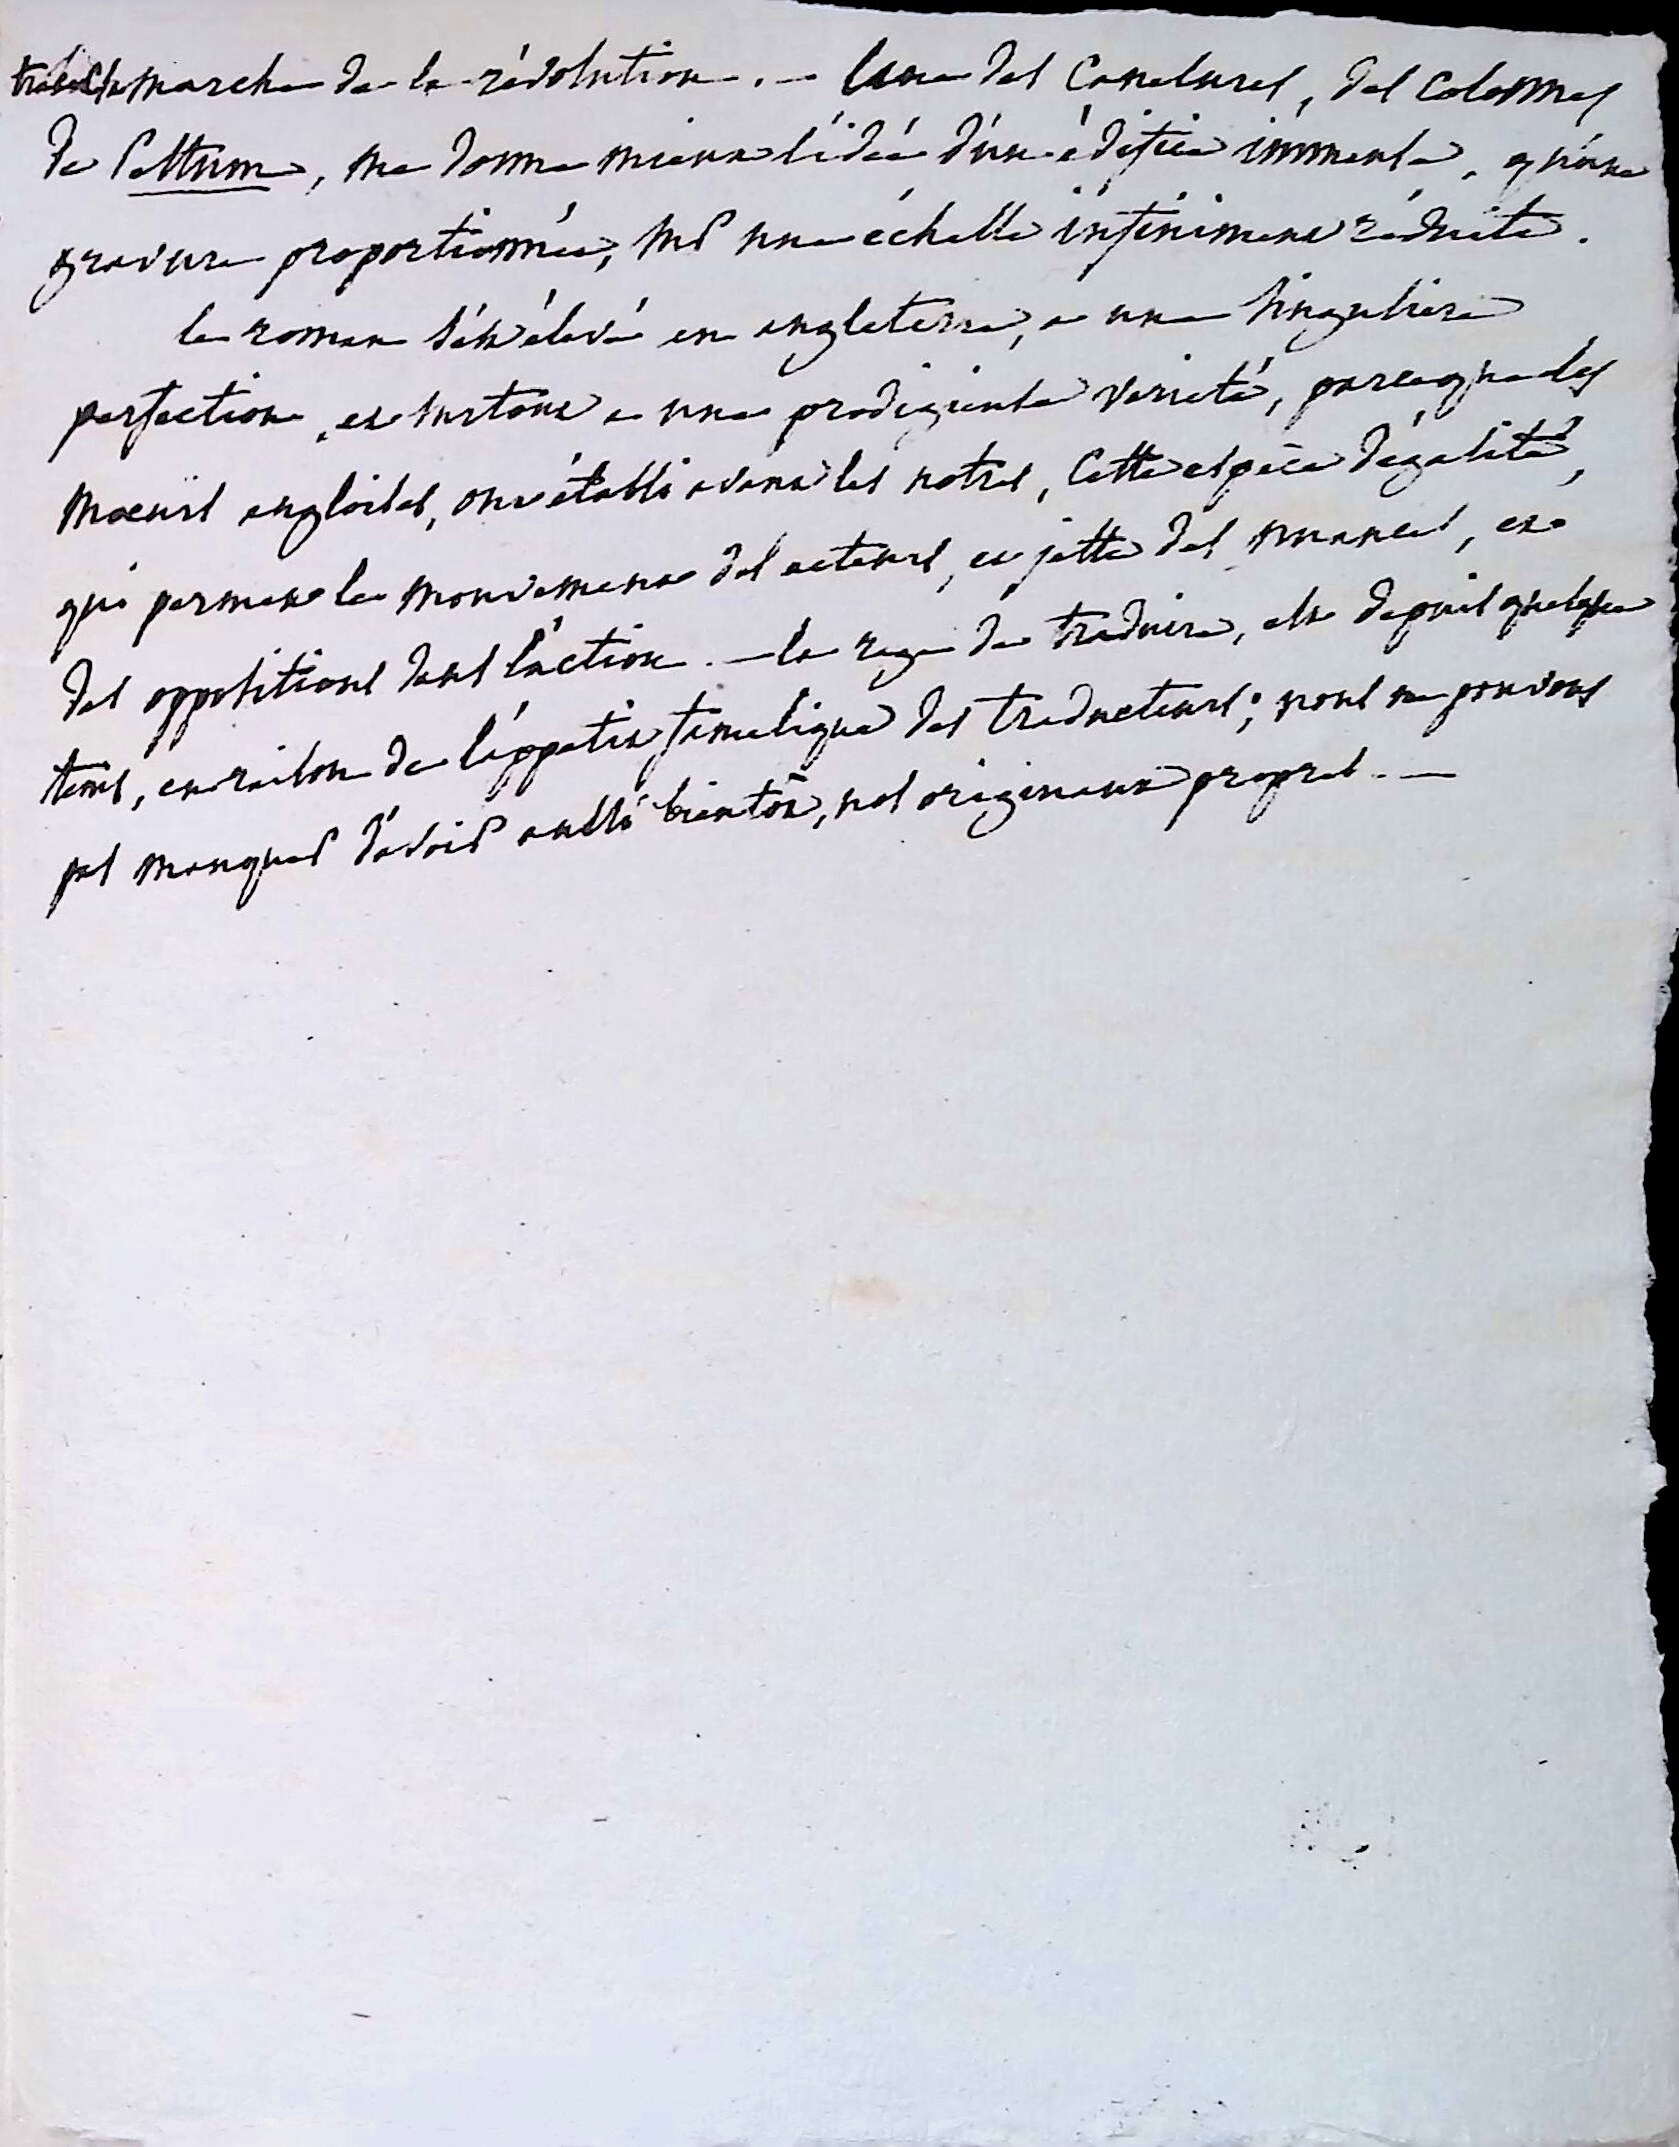 la marche de la révolution. — Une des canelures, des colonnes
de Pestum, me donne mieux l'idée d'un édifice immense, qu'une
gravure proportionnée, sur une échelle infiniment réduite.
le roman s'est élevé en angleterre, a une singuliere
perfection, et surtout a une prodigieuse varieté, parceque les
moeurs angloises, ont établi avant les notres, cette espèce d'égalité,
qui permet le mouvement des acteurs, et jette des nuances, et
des oppositions dans l'action. — la rage de traduire, est depuis quelque
tems, en raison de l'appetit famelique des traducteurs; nous ne pouvons
pas manquer d'avoir aussi bientôt, nos originaux propres. —